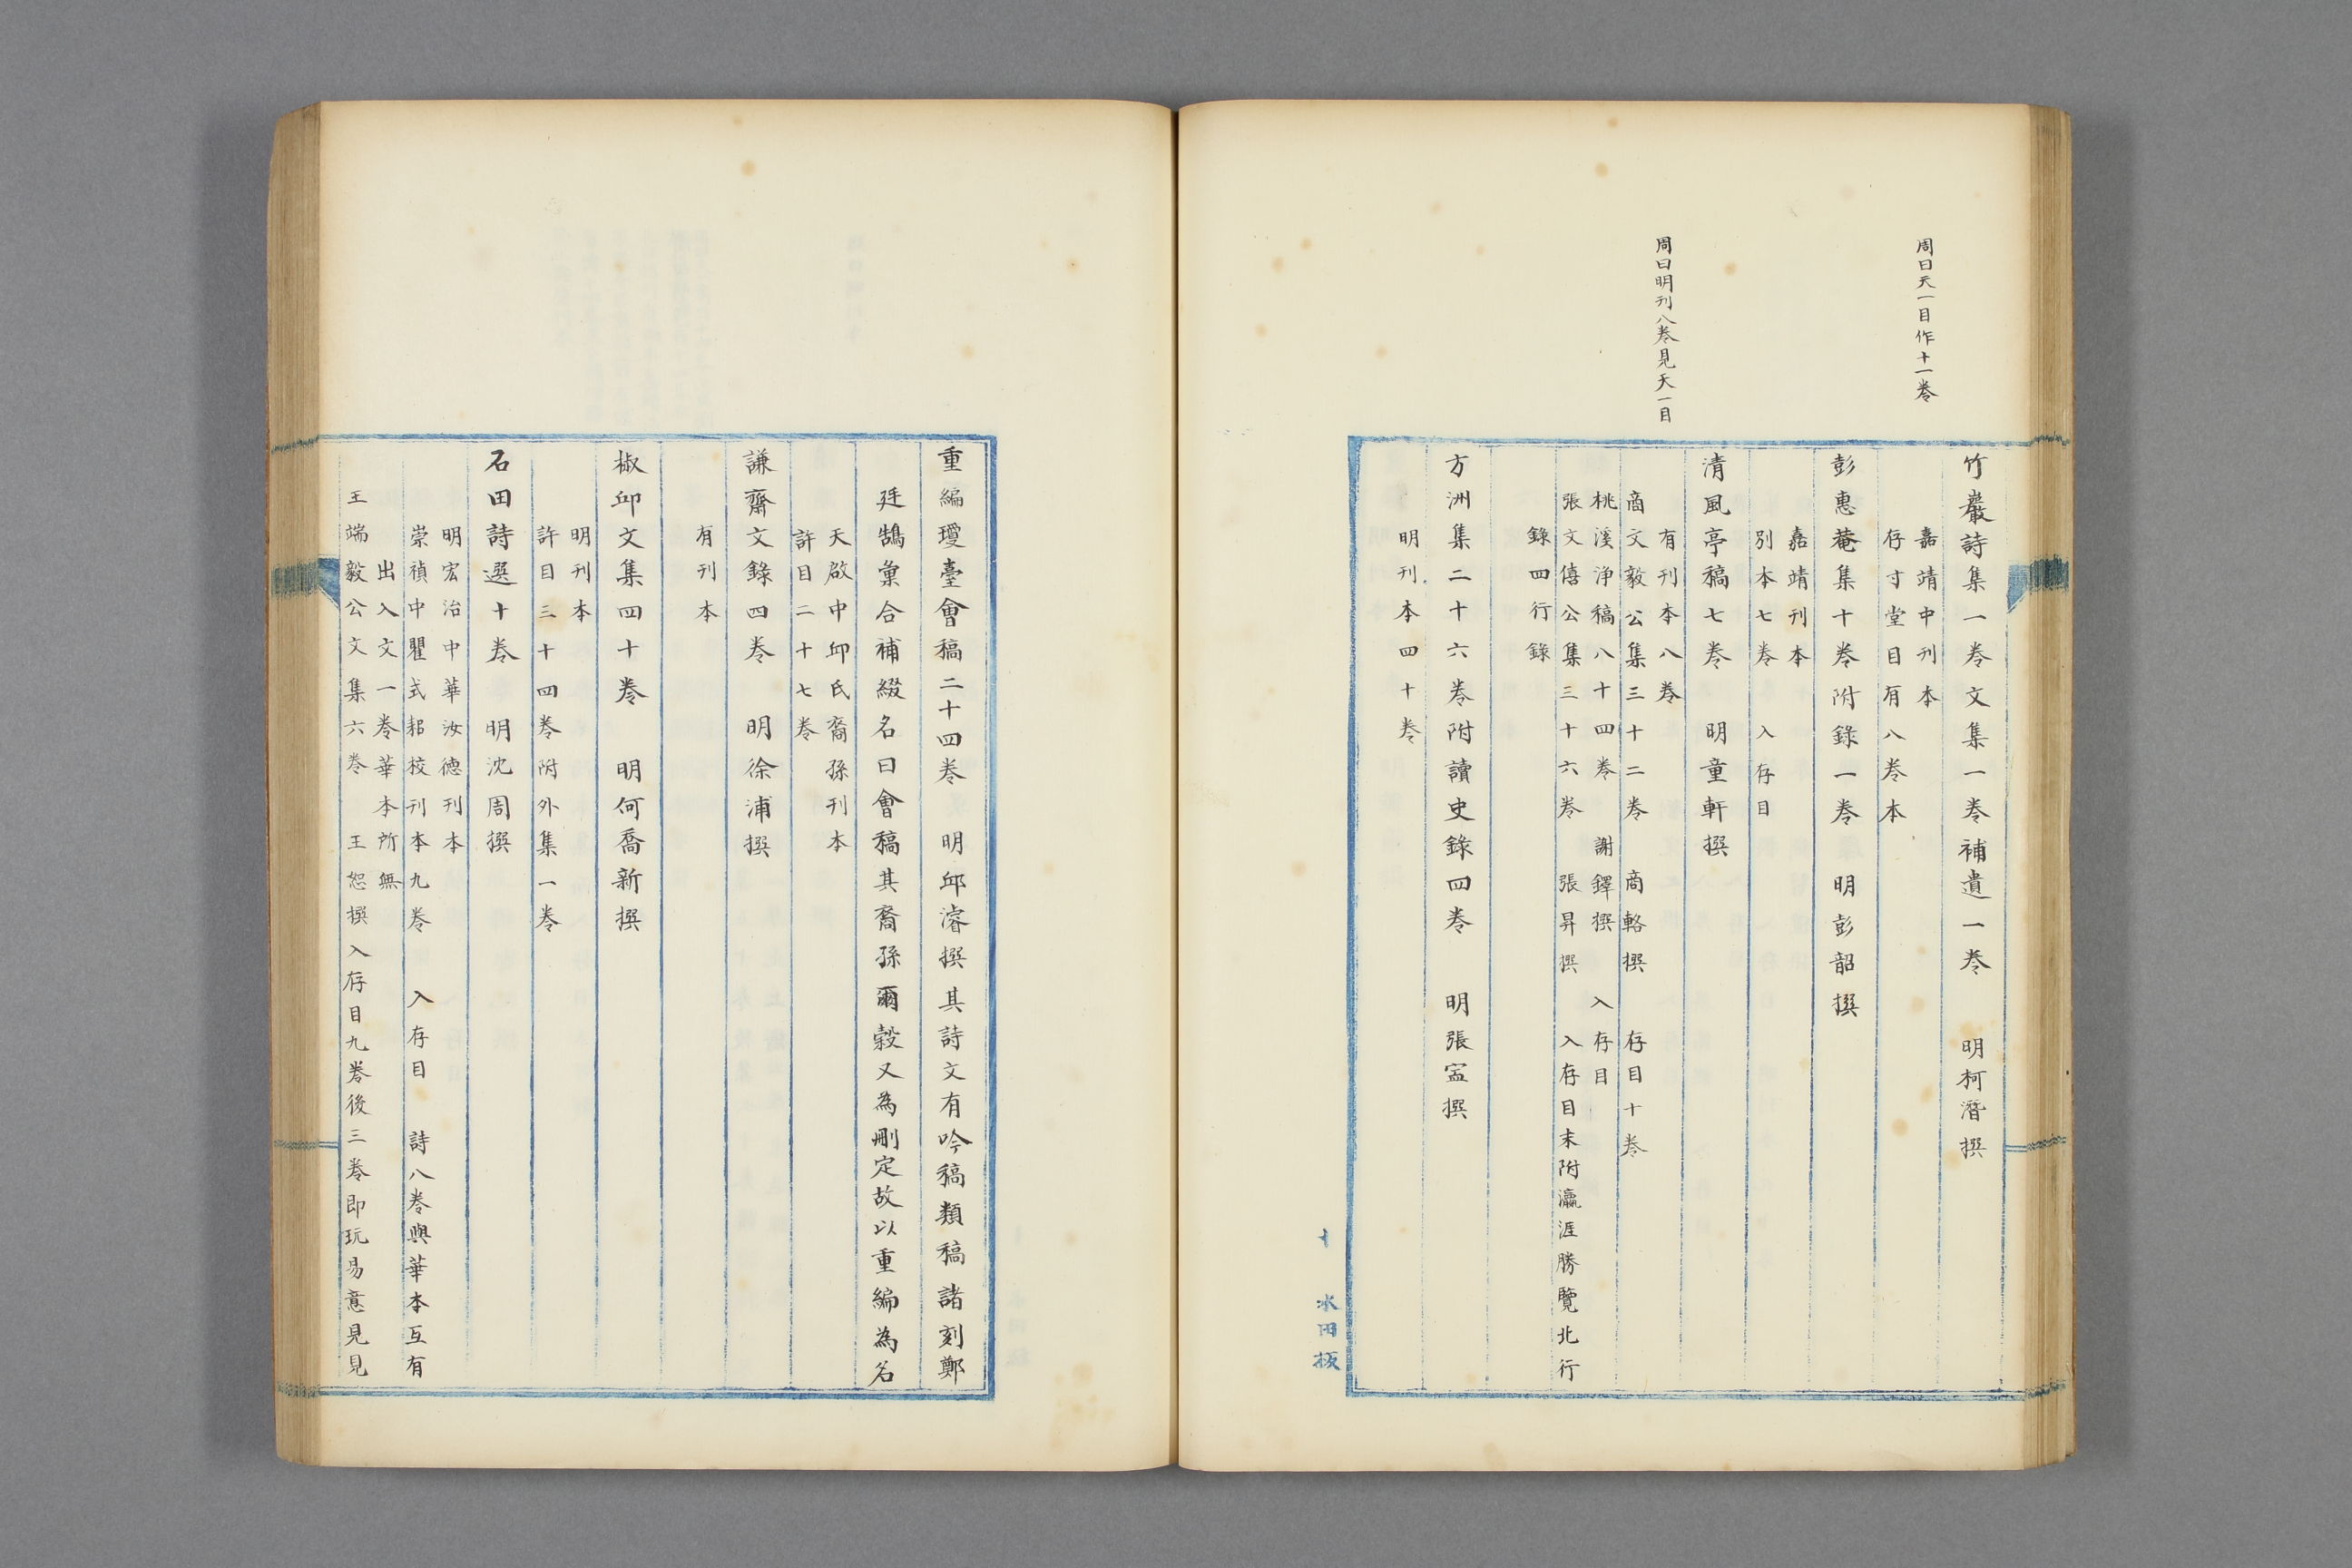 周曰天一目作十一卷
周曰明刊八卷見天一目
竹巖詩集一卷文集一卷補遺一卷　明柯潛撰
嘉靖中刊本
存寸堂目有八卷本
彭惠菴集十卷附錄一卷　明彭韶撰
嘉靖刊本
別本七卷　入存目
清風亭稿七卷　明童軒撰
有刊本八卷
商文毅公集三十二卷　商輅撰　存目十卷
桃溪淨稿八十四卷　謝鐸撰　入存目
張文僖公集三十六卷　張昇撰　入存目末附瀛涯勝覽北行
錄四行錄
方洲集二十六卷附讀史錄四卷　明張寍撰
明刊本四十卷
十　冰田拔
重編瓊臺會稿二十四卷　明邱濬撰其詩文有吟稿類稿諸刻鄭
廷鵠彙合補綴名曰會稿其裔孫爾穀又為刪定故以重編為名
天啟中邱氏裔孫刊本
許目二十七卷
謙齋文錄四卷　明徐浦撰
有刊本
椒邱文集四十卷　明何喬新撰
明刊本
許目三十四卷附外集一卷
石田詩選十卷　明沈周撰
明宏治中華汝德刊本
崇禎中瞿式耜校刊本九卷　入存目　詩八卷與華本互有
出入文一卷華本所無
王端毅公文集六卷　王恕撰入存目九卷後三卷即玩易意見見